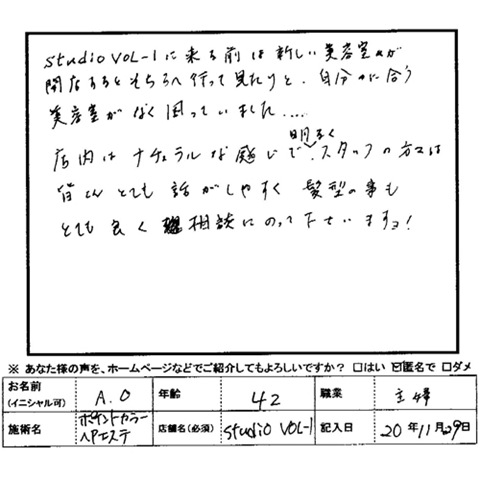 studio VOL-1に来る前は新しい美容室が
開店するとそちらへ行って見たりと、自分に合う
美容室がなく困っていました....
店内はナチュラルな感じで明るく、スタッフの方々は
皆さんとても話がしやすく 髪型の事も
とても良く相談にのって下さいますヨ!
※ あなた様の声を、ホームページなどでご紹介してもよろしいですか? □はい ☑匿名で □ダメ
お名前(イニシャル可) A.O 年齢 42 職業 主婦
施術名 ポイントカラー ヘアエステ 店舗名(必須) studio VOL-1 記入日 20年11月29日